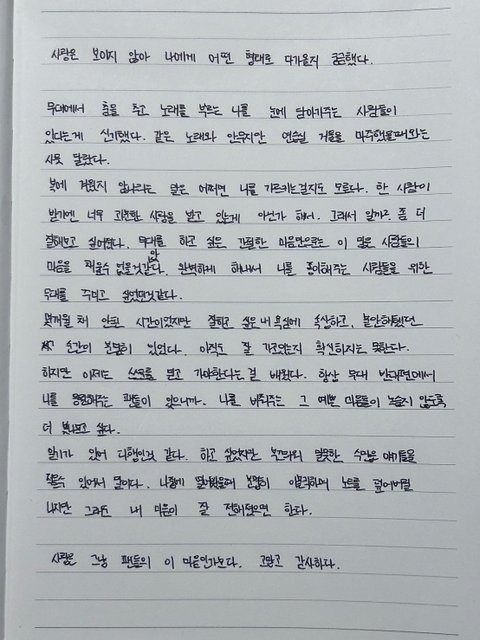 사랑은 보이지 않아 나에게 어떤 형태로 다가올지 궁금했다.
무대에서 춤을 추고 노래를 부르는 나를 눈에 담아가주는 사람들이
있다는게 신기했다. 같은 노래와 안무지만 연습실 거울을 마주했을때와는
사뭇 달랐다.
복에 겨웠지 않나라는 말은 어쩌면 나를 가르키는걸지도 모르다. 한 사람이
받기엔 너무 과분한 사랑을 받고 있는게 아닌가 해서. 그래서 일까 좀 더
잘해보고 싶어졌다. 무대를 하고 싶은 간절한 마음만으로는 이 많은 사람들의
마음을 채울수 없을것같다. 완벽하게 해내서 나를 좋아해주는 사람들을 위한
무대를 꾸미고 싶었던것같다.
몇개월 채 안된 시간이었지만 잘하고 싶은 내 욕심에 속상하고, 불안해했던
순간이 분명히 있었다. 아직도 잘 가고있는지 확신하지는 못한다.
하지만 이제는 스스로를 믿고 가야한다는걸 배웠다. 항상 무대 반대편에서
나를 응원해주는 팬들이 있으니까. 나를 비춰주는 그 예쁜 마음들이 녹슬지 않도록
더 빛나고 싶다.
일기가 있어 다행인것 같다. 하고 싶었지만 부끄러워 말못한 수많은 얘기들을
적을수 있어서 말이다. 나중에 열어봤을때 분명히 이불킥하며 노트를 덮어버릴
나지만 그래도 내 마음이 잘 전해졌으면 한다.
사랑은 그냥 팬들의 이 마음인가보다. 고맙고 감사하다.